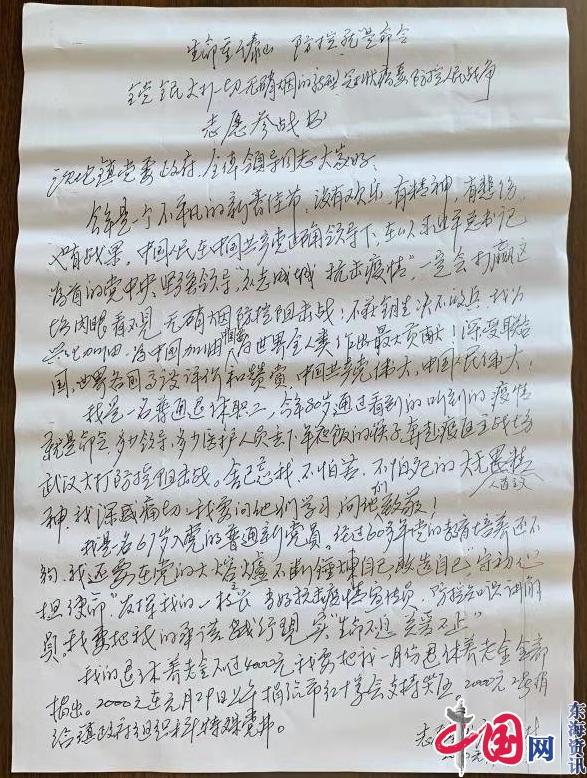 生命重于泰山 防控就是命令
全党全民大打一切无硝烟的新型冠状病毒防控人民战争
志愿参战书
镇党委政府、全体领导同志大家好:
今年是一个不平凡的新春佳节,没有欢乐,有精神,有悲伤
也有战果。中国人民在中国共产党正确领导下,在以习近平总书记
为首的党中央坚强领导"众志成城 抗击疫情",一定会打赢这
场肉眼看不见 无硝烟防控阻击战!不获全胜决不收兵,我们
共同加油,为中国加油 为世界全人类作出最大贡献!深受联合
国,世界各国高度评价和赞赏,中国共产党伟大,中国人民伟大!
我是一名普通退休职工,今年80岁,通过看到的听到的疫情
就是命令,多少领导,多少医护人员丢下年夜饭的筷子奔赴疫区主战场
武汉大打防控阻击战。舍己忘我、不怕苦、不怕死的大无畏精
人道主义
神,我深感痛切,我要向他们学习 向他们致敬!
我是名67岁入党的普通新党员。经过60多年党的教育培养还不
够,我还要在党的大熔炉不断锤炼自己,改造自己"守初心
担使命"发挥我的一技之长 当好抗击疫情宣传员、防控知识讲解
员。我要把我的承诺践行现实"生命不息 奋斗不止"
我的退休养老金不过4000元我要把我一月份退休养老金全部
捐出。2000元在元月29日上午捐给市红十字会支持灾区。2000元 捐
给镇政府组织 特殊党费。
志愿
中国网
东海资讯